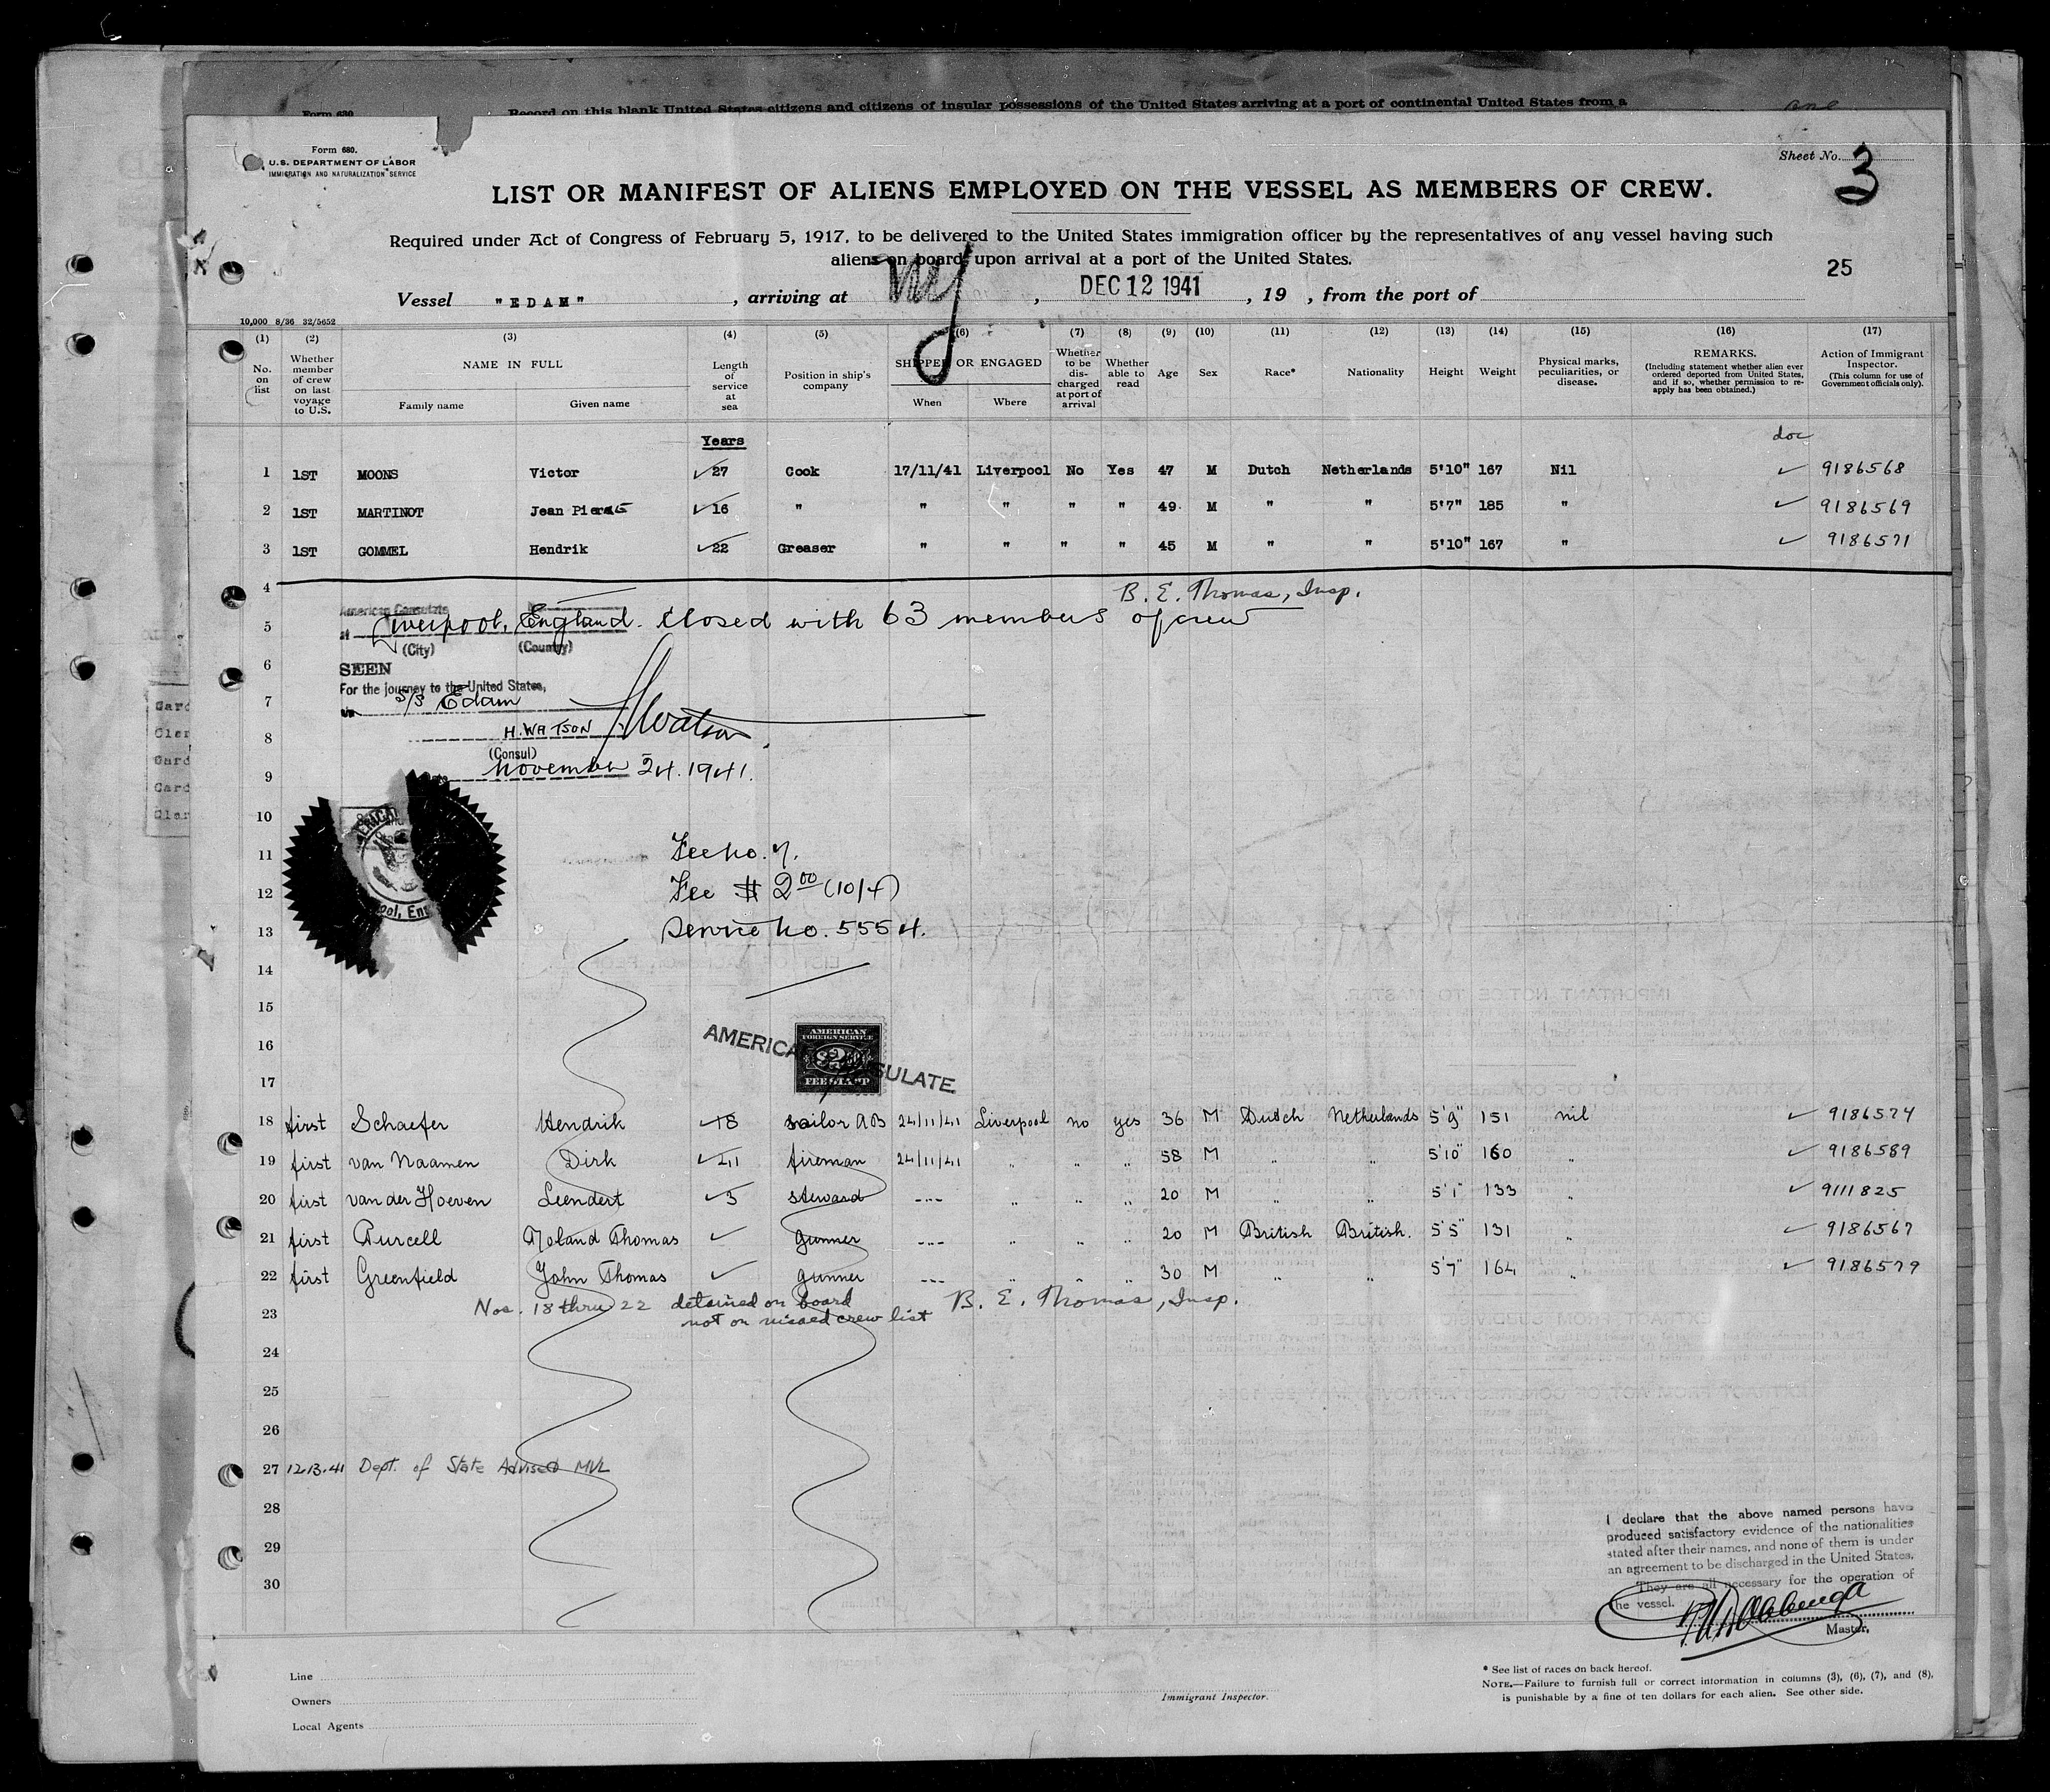 Form 630
Record on this blank United States citizens and citizens of insular possessions of the United States arriving at a port of continental United States from a
Form 680.
U.S. DEPARTMENT OF LABOR
IMMIGRATION AND NATURALIZATION SERVICE
Sheet No. 3
LIST OR MANIFEST OF ALIENS EMPLOYED ON THE VESSEL AS MEMBERS OF CREW.
Required under Act of Congress of February 5, 1917, to be delivered to the United States immigration officer by the representatives of any vessel having such
aliens on board upon arrival at a port of the United States.
25
Vessel "EDAM", arriving at NY, DEC 12 1941, 19 , from the port of
10,000 8/36 32/5652
(1) (2) (3) (4) (5) (6) (7) (8) (9) (10) (11) (12) (13) (14) (15) (16) (17)
No. on list
Whether member of crew on last voyage to U.S.
NAME IN FULL
Family name
Given name
Length of service at sea
Position in ship's company
SHIPPED OR ENGAGED
When
Where
Whether to be discharged at port of arrival
Whether able to read
Age
Sex
Race*
Nationality
Height
Weight
Physical marks, peculiarities, or disease.
REMARKS.
(Including statement whether alien ever ordered deported from United States, and if so, whether permission to re-apply has been obtained.)
Action of Immigrant Inspector.
(This column for use of Government officials only).
Years
doc
1 1ST MOONS Victor ✓27 Cook 17/11/41 Liverpool No Yes 47 M Dutch Netherlands 5'10" 167 Nil ✓ 9186568
2 1ST MARTINOT Jean Pierre ✓16 " " " " " 49 M " " 5'7" 185 " ✓ 9186569
3 1ST GOMMEL Hendrik ✓22 Greaser " " " " 45 M " " 5'10" 167 " ✓ 9186571
4
B. E. Thomas, Insp.
American Consulate
5 at Liverpool, England. Closed with 63 members of crew
(City) (Country)
6 SEEN
For the journey to the United States,
7 via S/S Edam
8 H. WATSON HWatson
(Consul)
9 November 24. 1941.
10
11 Fee No. 7.
12 Fee $ 2.00 (10/4)
13 Service No. 5554.
14
15
AMERICAN CONSULATE
AMERICAN
FOREIGN SERVICE
16 $2
17 FEE STAMP
18 first Schaefer Hendrik ✓18 sailor AB 24/11/41 Liverpool no yes 36 M Dutch Netherlands 5'9" 151 nil ✓ 9186574
19 first van Naamen Dirk ✓41 fireman 24/11/41 " " " 58 M " " 5'10" 160 " ✓ 9186589
20 first van der Hoeven Leendert ✓3 steward -"- " " " 20 M " " 5'1" 133 " ✓ 9111825
21 first Purcell Roland Thomas ✓ gunner -"- " " " 20 M British British. 5'5" 131 " ✓ 9186567
22 first Greenfield John Thomas ✓ gunner -"- " " " 30 M " " 5'7" 164 " ✓ 9186579
23 Nos. 18 thru 22 detained on board B. E. Thomas, Insp.
not on visaed crew list
24
25
26
27 12.13.41 Dept. of State Advised MVL
28
29
30
I declare that the above named persons have
produced satisfactory evidence of the nationalities
stated after their names, and none of them is under
an agreement to be discharged in the United States.
They are all necessary for the operation of
the vessel.
Master.
Line
Owners
Local Agents
Immigrant Inspector.
* See list of races on back hereof.
NOTE.—Failure to furnish full or correct information in columns (3), (6), (7), and (8),
is punishable by a fine of ten dollars for each alien. See other side.